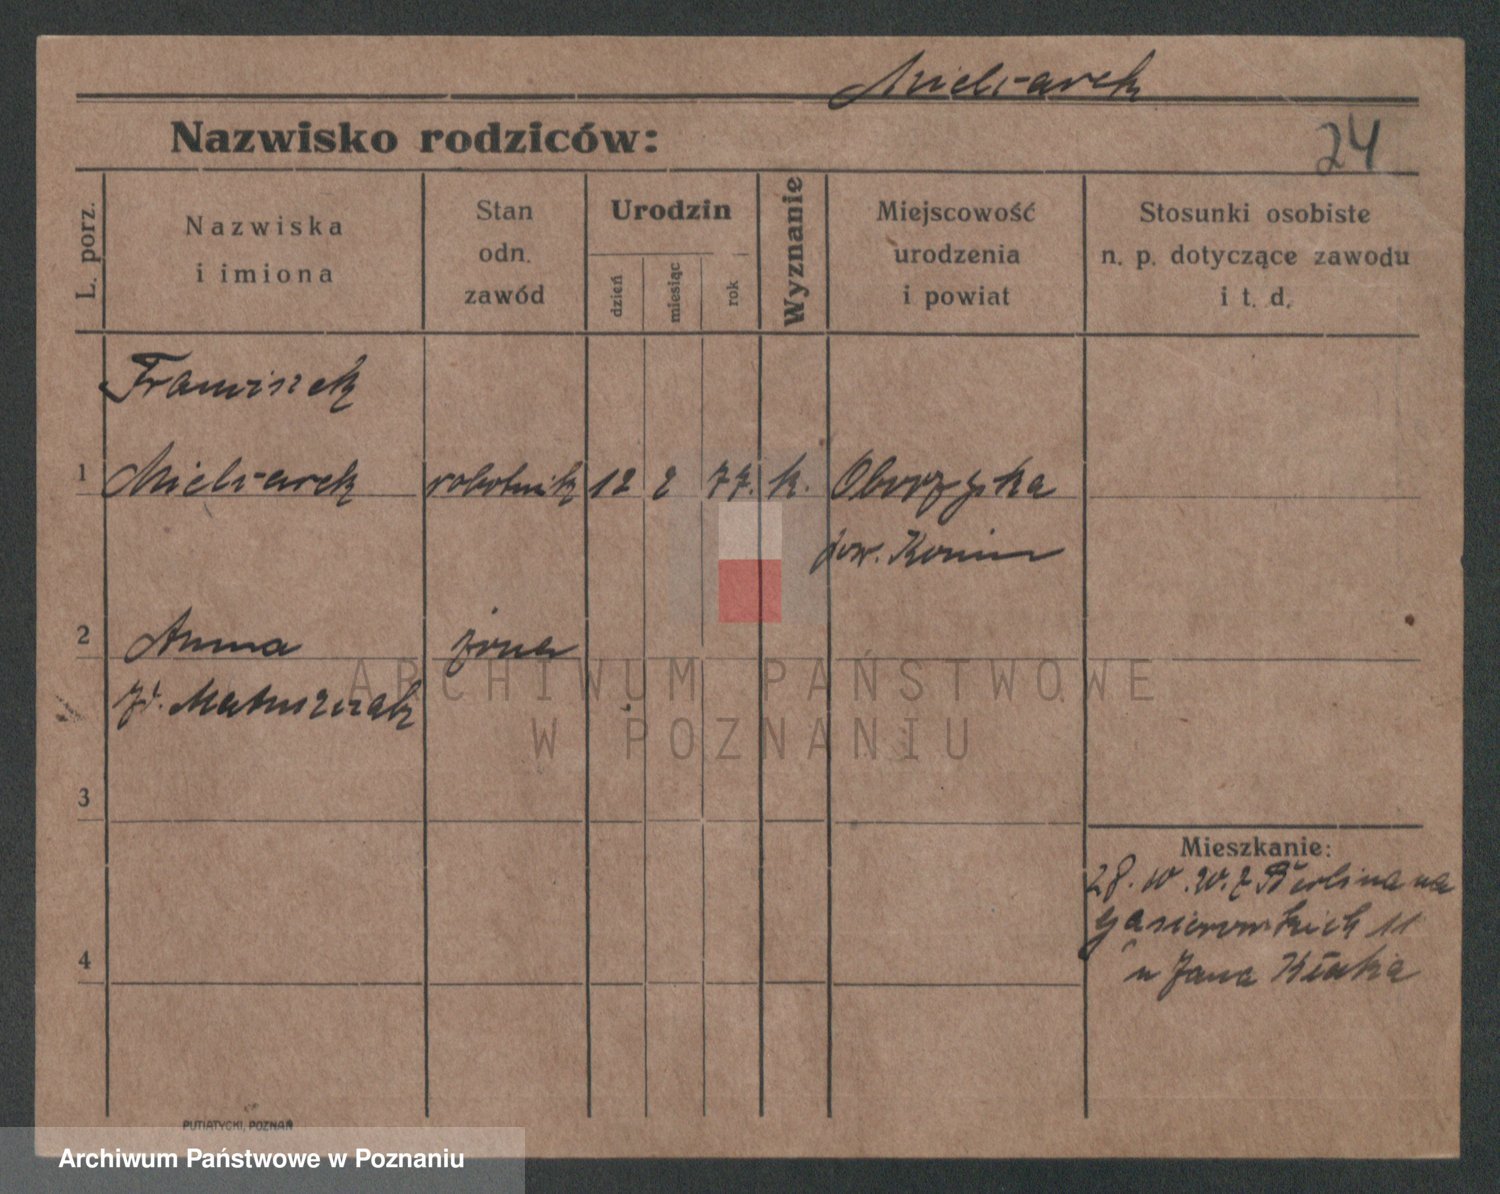 Mielcarek
Nazwisko rodziców:
24
L. porz.
Nazwiska
i imiona
Stan
odn.
zawód
Urodzin
dzień
miesiąc
rok
Wyznanie
Miejscowość
urodzenia
i powiat
Stosunki osobiste
n. p. dotyczące zawodu
i t. d.
Franciszek
1 Mielcarek robotnik 12 2 77. k. Obrzyska
pow. Konin
2 Anna żona
Matuszczak
3
4
Mieszkanie:
28. 10. 20. z Berlina na
Gąsiorowskich 11
u Jana
ARCHIWUM PAŃSTWOWE
W POZNANIU
PUTIATYCKI, POZNAŃ
Archiwum Państwowe w Poznaniu